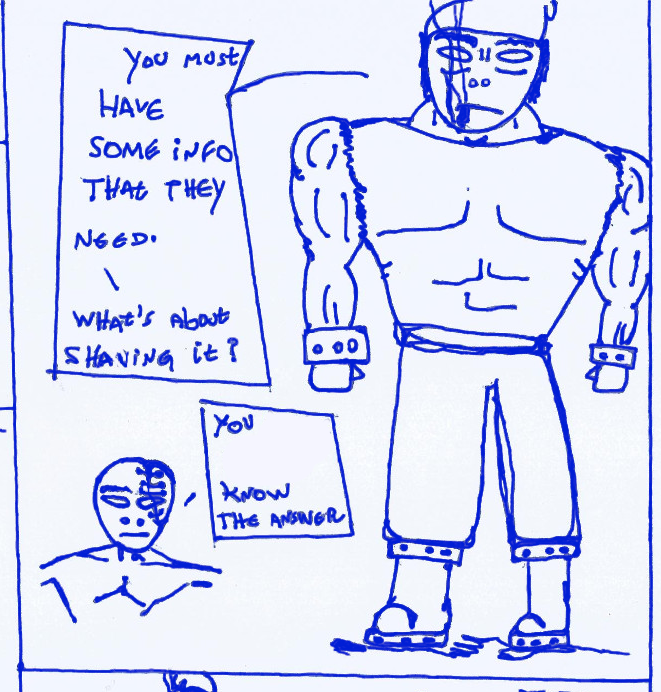 YOU MUST
HAVE
SOME iNFO
THAt THEY
NEED.
WHAT'S ABOUT
SHAViNG iT?
YOU
KNOW
THE ANSWER